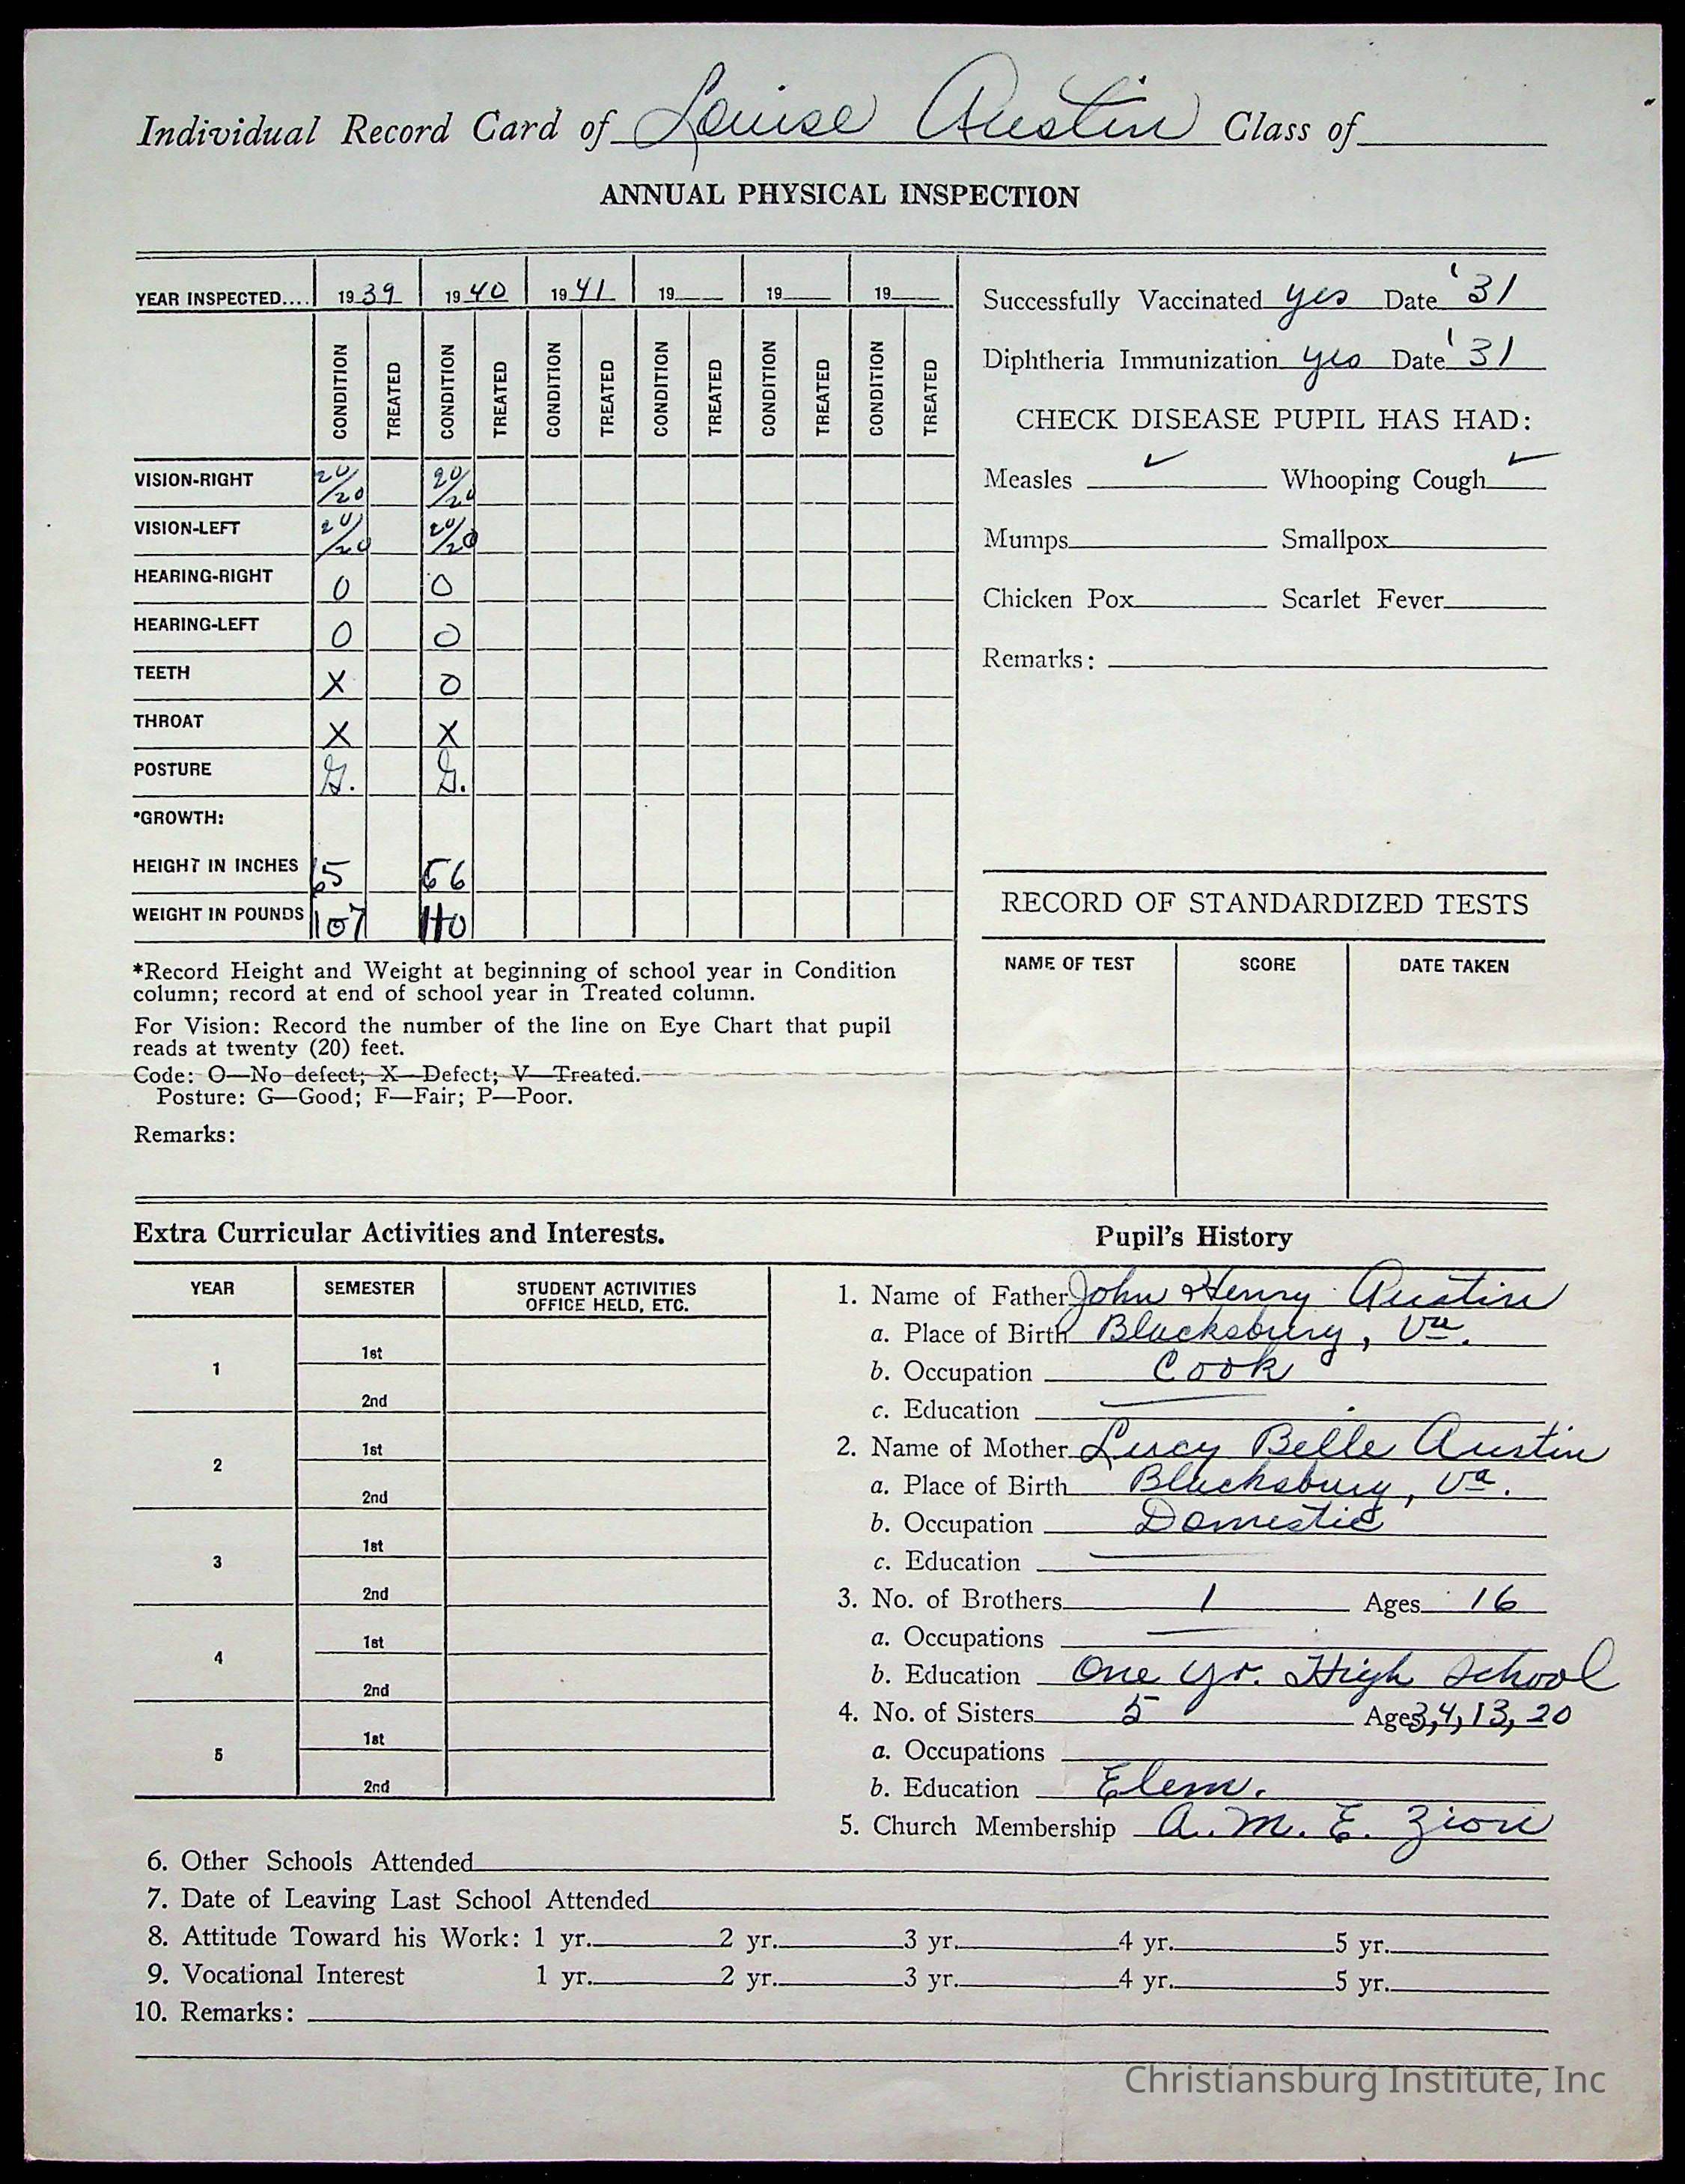 Individual Record Card of Louise Austin Class of
ANNUAL PHYSICAL INSPECTION
YEAR INSPECTED.... 1939 1940 1941 19 19 19
CONDITION TREATED CONDITION TREATED CONDITION TREATED CONDITION TREATED CONDITION TREATED CONDITION TREATED
VISION-RIGHT 20/20 20/20
VISION-LEFT 20/20 20/20
HEARING-RIGHT 0 0
HEARING-LEFT 0 0
TEETH X 0
THROAT X X
POSTURE G. G.
*GROWTH:
HEIGHT IN INCHES 65 66
WEIGHT IN POUNDS 107 110
*Record Height and Weight at beginning of school year in Condition
column; record at end of school year in Treated column.
For Vision: Record the number of the line on Eye Chart that pupil
reads at twenty (20) feet.
Code: O—No defect; X—Defect; V—Treated.
Posture: G—Good; F—Fair; P—Poor.
Remarks:
Successfully Vaccinated yes Date '31
Diphtheria Immunization yes Date '31
CHECK DISEASE PUPIL HAS HAD:
Measles ✓ Whooping Cough ✓
Mumps Smallpox
Chicken Pox Scarlet Fever
Remarks:
RECORD OF STANDARDIZED TESTS
NAME OF TEST SCORE DATE TAKEN
Extra Curricular Activities and Interests.
YEAR SEMESTER STUDENT ACTIVITIES
OFFICE HELD, ETC.
1 1st
2nd
2 1st
2nd
3 1st
2nd
4 1st
2nd
5 1st
2nd
Pupil's History
1. Name of Father John Henry Austin
a. Place of Birth Blacksburg, Va.
b. Occupation Cook
c. Education —
2. Name of Mother Lucy Belle Austin
a. Place of Birth Blacksburg, Va.
b. Occupation Domestic
c. Education —
3. No. of Brothers 1 Ages 16
a. Occupations —
b. Education One yr. High School
4. No. of Sisters 5 Ages 3, 4, 13, 20
a. Occupations
b. Education Elem.
5. Church Membership A. M. E. Zion
6. Other Schools Attended
7. Date of Leaving Last School Attended
8. Attitude Toward his Work: 1 yr. 2 yr. 3 yr. 4 yr. 5 yr.
9. Vocational Interest 1 yr. 2 yr. 3 yr. 4 yr. 5 yr.
10. Remarks:
Christiansburg Institute, Inc